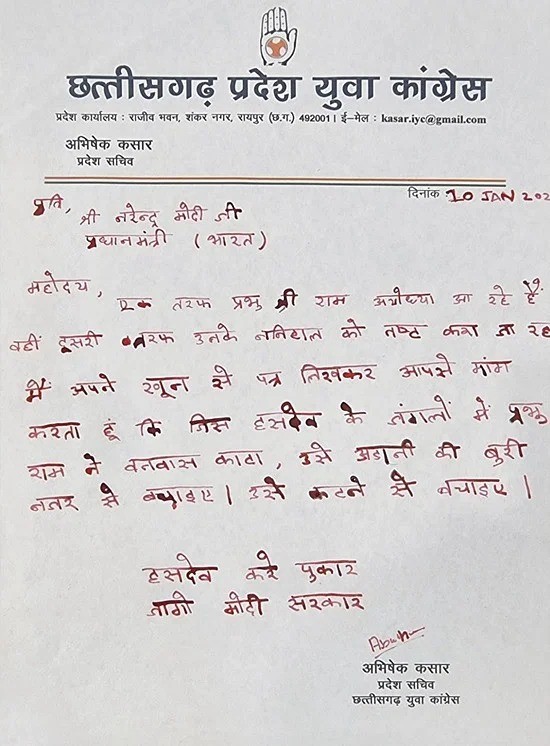 छत्तीसगढ़ प्रदेश युवा कांग्रेस
प्रदेश कार्यालय : राजीव भवन, शंकर नगर, रायपुर (छ.ग.) 492001 | ई-मेल : kasar.iyc@gmail.com
अभिषेक कसार
प्रदेश सचिव
दिनांक 10 JAN 202
प्रति,
श्री नरेन्द्र मोदी जी
प्रधानमंत्री (भारत)
महोदय,
एक तरफ प्रभु श्री राम अयोध्या आ रहे हैं
वहीं दूसरी तरफ उनके ननिहाल को नष्ट करा जा रह
मैं अपने खून से पत्र लिखकर आपसे मांग
करता हूं कि जिस हसदेव के जंगलों में प्रभु
राम ने वनवास काटा, उसे अडानी की बुरी
नजर से बचाइए। उसे कटने से बचाइए।
हसदेव करे पुकार
जागो मोदी सरकार
अभिषेक कसार
प्रदेश सचिव
छत्तीसगढ़ युवा कांग्रेस